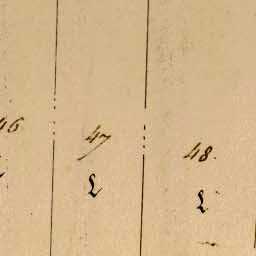 46
47
48.
L
L